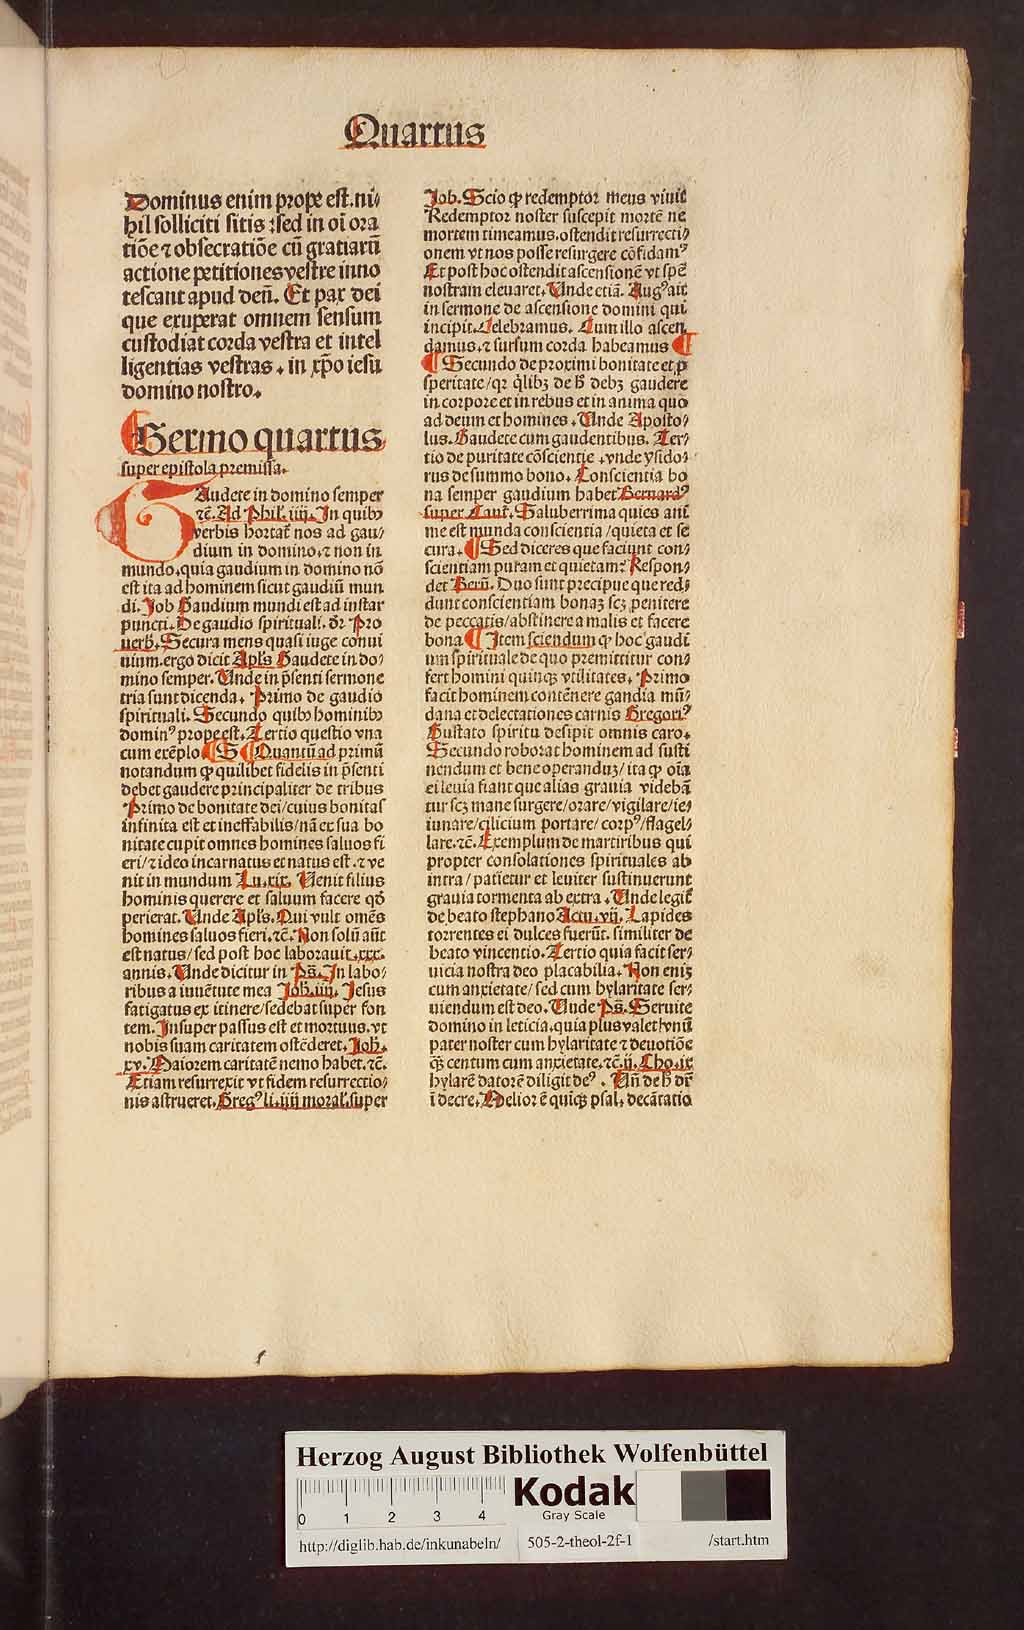 Quartus
Dominus enim prope est. ni⸗
hil solliciti sitis: sed in oi͞ ora
tiōe ⁊ obsecratiōe cū gratiarū
actione petitiones vestre inno
tescant apud deū. Et pax dei
que exuperat omnem sensum
custodiat corda vestra et intel
ligentias vestras. in xp̄o iesu
domino nostro.
¶ Sermo quartus
super epistola premissa.
Gaudete in domino semper
⁊c̄. Ad Phil'. iiij. In quibꝰ
verbis hortat᷑ nos ad gau/
dium in domino. ⁊ non in
mundo. quia gaudium in domino nō
est ita ad hominem sicut gaudiū mun
di. Job Gaudium mundi est ad instar
puncti. De gaudio spirituali. dr̄. Pro
uerb̄. Secura mens quasi iuge conui
nium. ergo dicit Apl's Gaudete in do/
mino semper. Unde in p̄senti sermone
tria sunt dicenda. Primo de gaudio
spirituali. Secundo quibꝰ hominibꝰ
dominꝰ prope est. Tertio questio vna
cum exēplo ¶ S ¶ Quantū ad primū
notandum ꝙ quilibet fidelis in p̄senti
debet gaudere principaliter de tribus
Primo de bonitate dei/ cuius bonitas
infinita est et ineffabilis/ nā ex sua bo
nitate cupit omnes homines saluos fi
eri/ ⁊ ideo incarnatus et natus est. ⁊ ve
nit in mundum Lu. xix. Venit filius
hominis querere et saluum facere qd̄
perierat. Unde Apl's. Qui vult omēs
homines saluos fieri. ⁊c̄. Non solū aūt
est natus/ sed post hoc laborauit. xxx.
annis. Unde dicitur in Ps̄. In labo/
ribus a iuuētute mea Joh̄. iiij. Jesus
fatigatus ex itinere/ sedebat super fon
tem. Insuper passus est et mortuus. vt
nobis suam caritatem ostēderet. Joh̄.
xv. Maiorem caritatē nemo habet. ⁊c̄.
Etiam resurrexit vt fidem resurrectio/
nis astrueret. Gregꝰ li. iiij moral'. super
Job. Scio ꝙ redemptor meus viuit
Redemptor noster suscepit mortē ne
mortem timeamus. ostendit resurrecti/
onem vt nos posse resurgere cōfidamꝰ
Et post hoc ostendit ascensionē vt spē
nostram eleuaret. Unde etiā. Augꝰ ait
in sermone de ascensione domini qui
incipit. Celebramus. Cum illo ascen
damus. ⁊ sursum corda habeamus ¶
¶ Secundo de proximi bonitate et ꝓ
speritate/ qꝛ q̄libꝫ de bn̄ debꝫ gaudere
in corpore et in rebus et in anima quo
ad deum et homines. Unde Aposto/
lus. Gaudete cum gaudentibus. Ter/
tio de puritate cōscientie. vnde ysido/
rus de summo bono. Conscientia bo
na semper gaudium habet Bernardꝰ
super Cant̄. Saluberrima quies ani
me est munda conscientia/ quieta et se
cura. ¶ Sed diceres que faciunt con/
scientiam puram et quietam: Respon/
det Bern̄. Duo sunt precipue que red/
dunt conscientiam bonaꝫ scꝫ penitere
de peccatis/ abstinere a malis et facere
bona ¶ Item sciendum ꝙ hoc gaudi
um spirituale de quo premittitur con/
fert homini quinqꝫ vtilitates. Primo
facit hominem contēnere gaudia mū/
dana et delectationes carnis Gregoriꝰ
Gustato spiritu desipit omnis caro.
Secundo roborat hominem ad susti
nendum et bene operanduꝫ/ ita ꝙ oīa
ei leuia fiant que alias grauia videbā
tur scꝫ mane surgere/ orare/ vigilare/ ie/
iunare/ cilicium portare/ corpꝰ/ flagel/
lare. ⁊c̄. Exemplum de martiribus qui
propter consolationes spirituales ab
intra/ patiētur et leuiter sustinuerunt
grauia tormenta ab extra. Unde legit᷑
de beato stephano Actu. vij. Lapides
torrentes ei dulces fuerūt. similiter de
beato vincentio. Tertio quia facit ser/
uicia nostra deo placabilia. Non eniꝫ
cum anxietate/ sed cum hylaritate ser/
uiendum est deo. Unde Ps̄. Seruite
domino in leticia. quia plus valet vnū
pater noster cum hylaritate ⁊ deuotiōe
qꝫ centum cum anxietate. ⁊c̄. ij. Cho. ix
hylarē datorē diligit deꝰ. Un̄ de h̄ dr̄
ī decre. Melior ē quiqꝫ psal. decātatio
Herzog August Bibliothek Wolfenbüttel
0 1 2 3 4
Kodak
Gray Scale
http://diglib.hab.de/inkunabeln/ 505-2-theol-2f-1 /start.htm